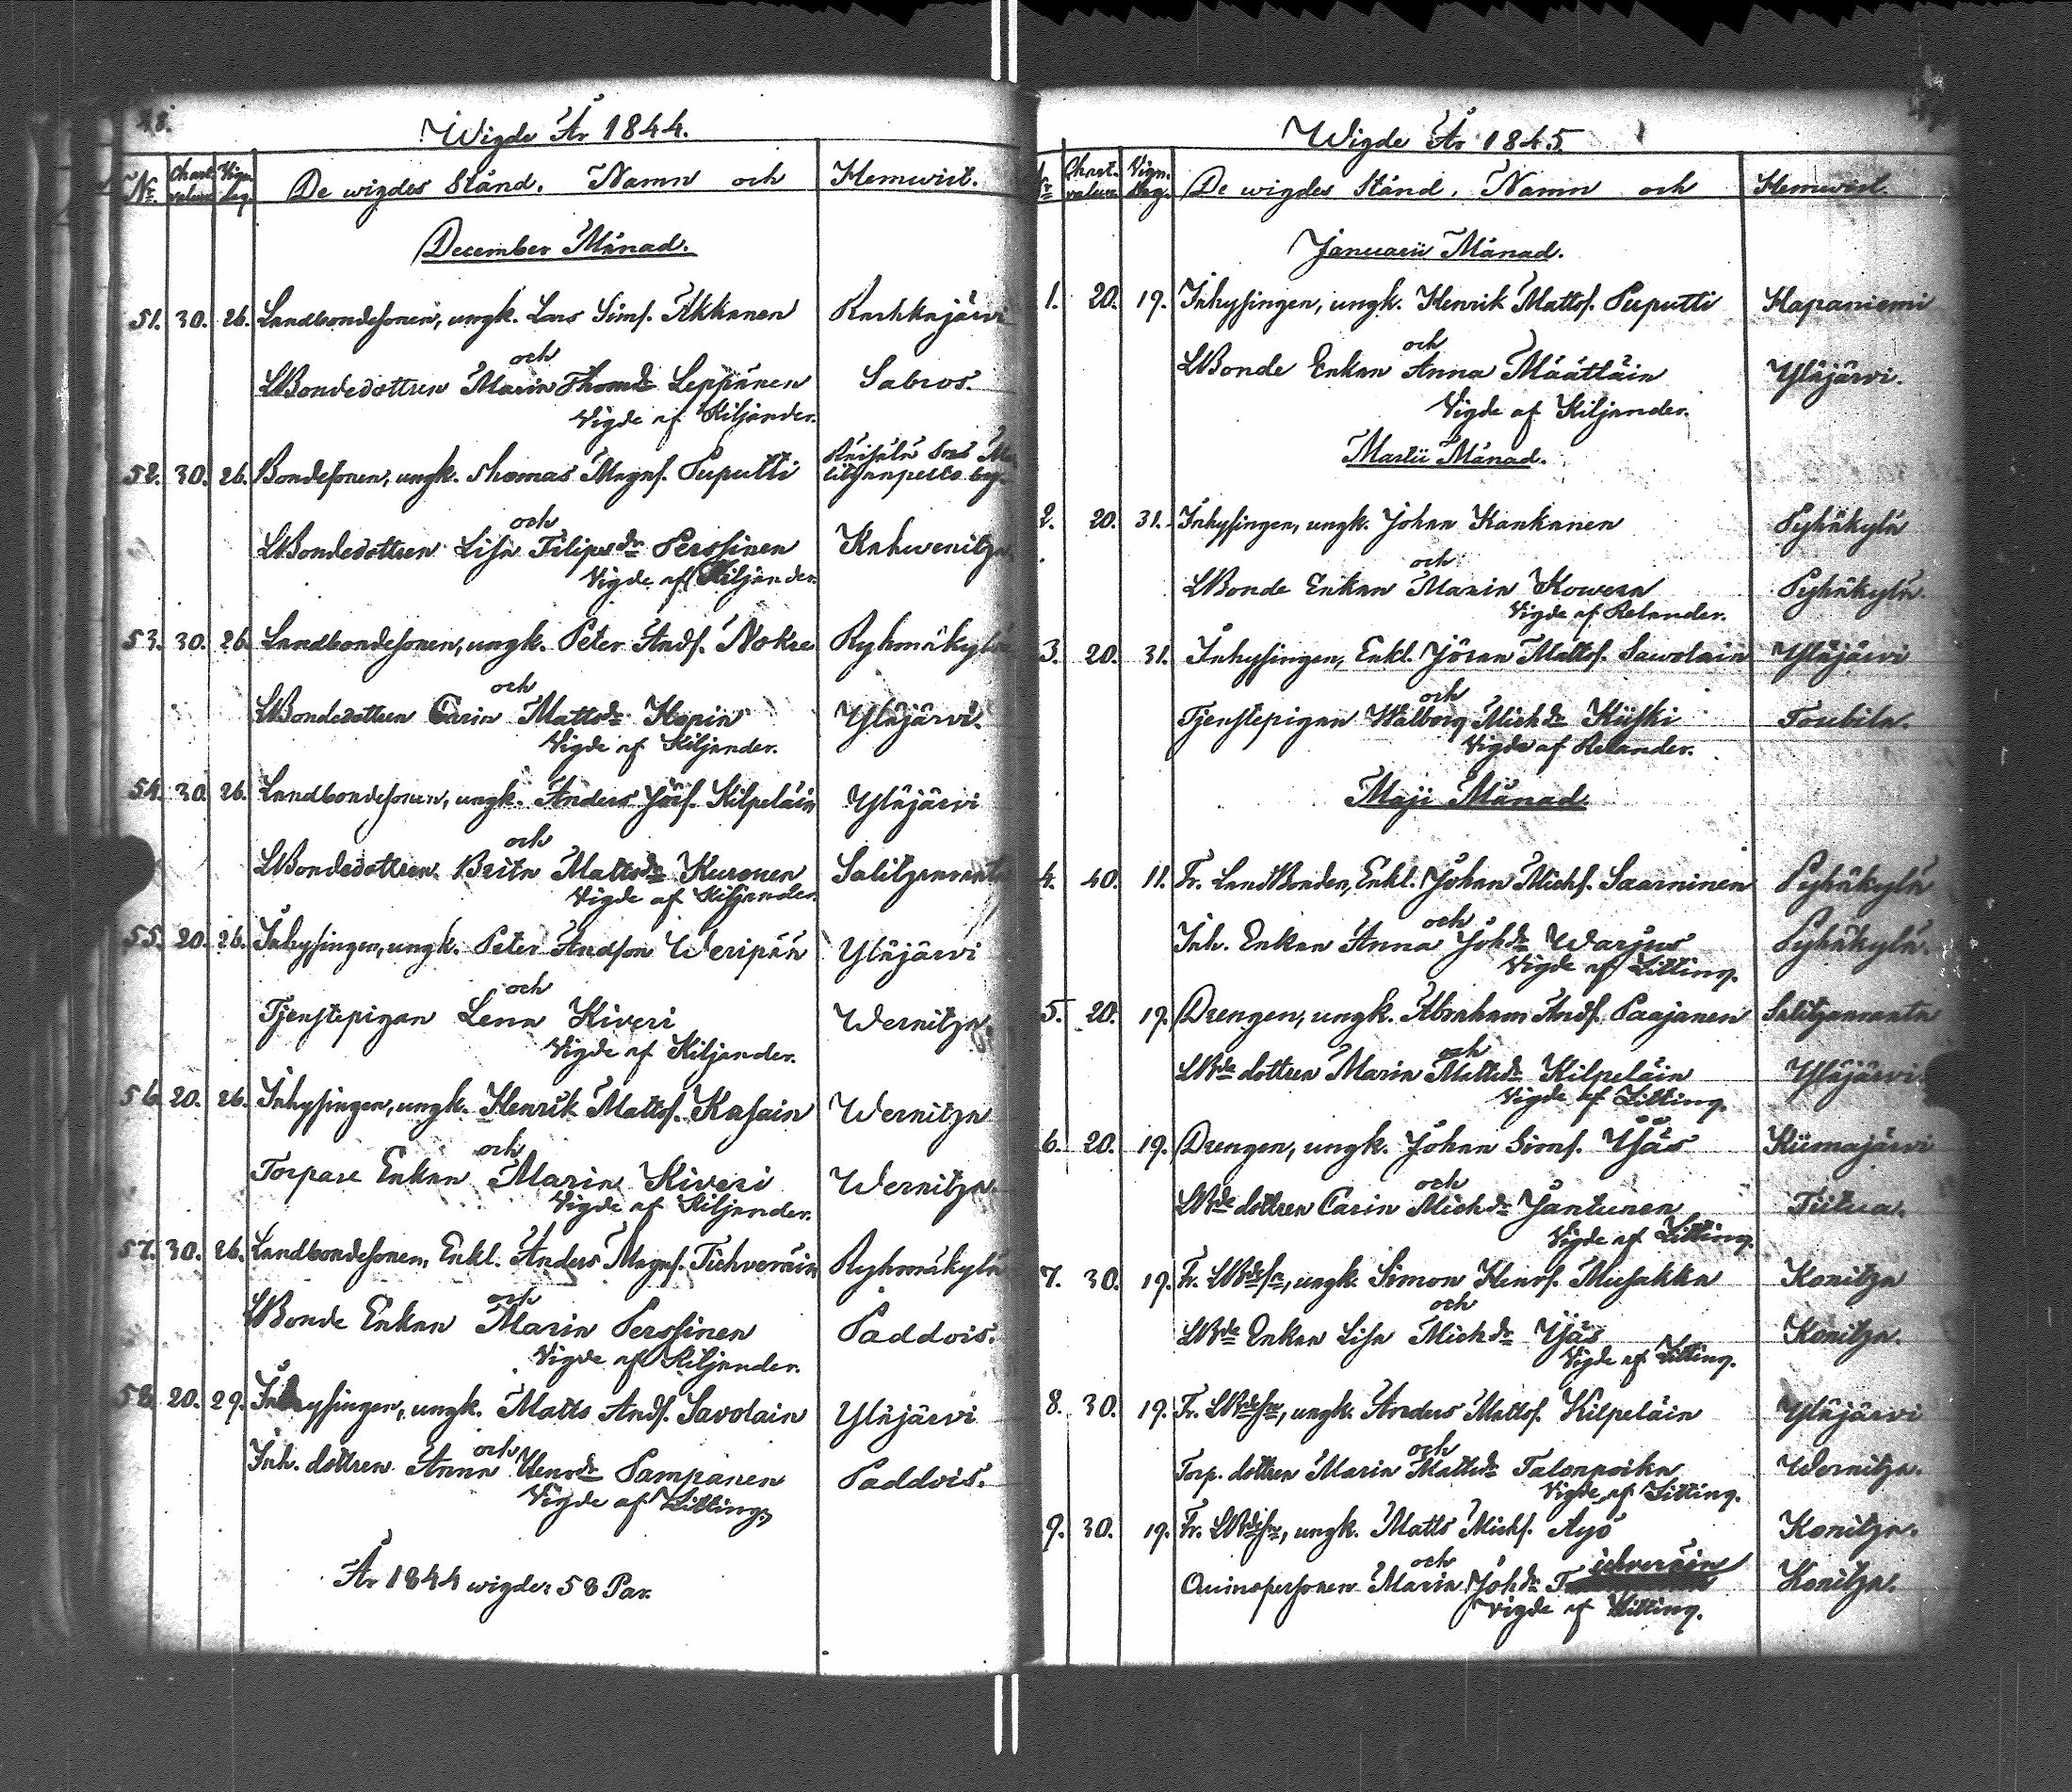 28.
Wigde År 1844.
No. Chart. valeur. Vign. dag. De wigdes Stånd. Namn och Hemwist.
December Månad.
51. 30. 26. Landbondesonen, ungk. Lars Sims. Akkanen Raskkajärvi
och
LBondedottren Maria Thomdr Leppänen Sabros.
Vigde af Kiljander.
52. 30. 26. Bondesonen, ungk. Thomas Magns. Puputti
och
LBondedottren Lisa Filipsdr Perssinen Kahwenitza
Vigde af Kiljander.
53. 30. 26. Landbondesonen, ungk. Peter Ands. Nokre Ryhmäkylä
och
LBondedottren Carin Mattsdr Hapin Yläjärvi.
Vigde af Kiljander.
54. 30. 26. Landbondesonen, ungk. Anders Jörs. Kilpeläin Yläjärvi
och
LBondedottren Brita Mattsdr Kuronen Salitzanranta
Vigde af Kiljander.
55. 20. 26. Inhysingen, ungk. Peter Andson Weripää Yläjärvi
och
Tjenstepigan Lena Kiveri Wernitza.
Vigde af Kiljander.
56. 20. 26. Inhysingen, ungk. Henrik Mattss. Kasain Wernitza
och
Torpare Enkan Maria Kiveri Wernitza.
Vigde af Kiljander.
57. 30. 26. Landbondesonen, Enkl. Anders Magns. Tiihveräin Ryhmäkylä
och
LBonde Enkan Maria Perssinen Paddois.
Vigde af Kiljander.
58. 20. 29. Inhysingen, ungk. Matts Ands. Savolain Yläjärvi
och
Inh. dottren Anna Henrdr Pampanen Paddois.
Vigde af Litting.
År 1844 wigder 58 Par.
Wigde År 1845.
Chart. valeur. Vign. dag. De wigdes Stånd. Namn och Hemwist.
Januarii Månad.
1. 20. 19. Inhysingen, ungk. Henrik Mattss. Puputti Hapaniemi
och
LBonde Enkan Anna Määttäin Yläjärvi.
Vigde af Kiljander.
Martii Månad.
2. 20. 31. Inhysingen, ungk. Johan Kankanen Pyhäkylä
och
LBonde Enkan Maria Kowera Pyhäkylä.
Vigde af Relander.
3. 20. 31. Inhysingen, Enkl. Jöran Mattss. Sawolain Yläjärvi
och
Tjenstepigan Walborg Michdr Kiiski Toubila.
Vigde af Relander.
Maji Månad.
4. 40. 11. Fr. LandBonden, Enkl. Johan Michs. Saarninen Pyhäkylä
och
Inh. Enkan Anna Johdr Warjus Pyhäkylä.
Vigde af Litting.
5. 20. 19. Drengen, ungk. Abraham Ands. Paajanen Salitzanranta
och
LBde dottren Maria Mattsdr Kilpeläin Yläjärvi.
Vigde af Litting.
6. 20. 19. Drengen, ungk. Johan Sims. Yjäs Kiimajärvi
och
LBde dottren Carin Michdr Jantunen Tiitua.
Vigde af Litting.
7. 30. 19. Fr. LBdesn, ungk. Simon Henrs. Musakka Konitza
och
LBde Enkan Lisa Michdr Yjäs Konitza.
Vigde af Litting.
8. 30. 19. Fr. LBdesn, ungk. Anders Mattss. Kilpeläin Yläjärvi
och
Torp. dottren Maria Mattsdr Talonpoika Wernitza.
Vigde af Litting.
9. 30. 19. Fr. LBdesn, ungk. Matts Michs. Äyö Konitza.
och
Quinspersonen Maria Johdr Tiihveräin Konitza.
Vigde af Litting.